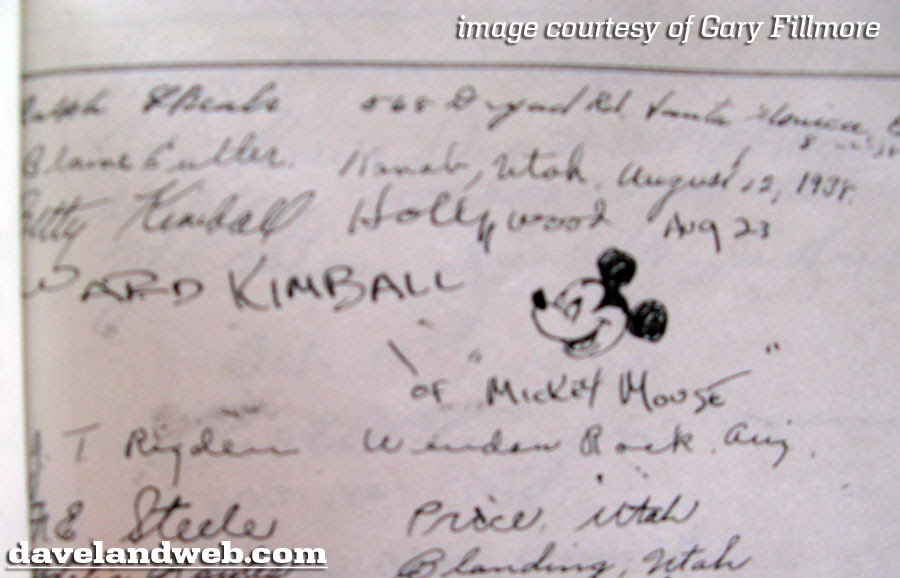 image courtesy of Gary Fillmore
568 Dryad Rd. Santa Monica,
Blaine Cutler. Kanab, Utah. August 12, 1938.
Betty Kimball Hollywood Aug 23
WARD KIMBALL
of "Mickey Mouse"
J. T Rigden Window Rock Ariz.
Steele Price, Utah
Blanding, Utah
davelandweb.com